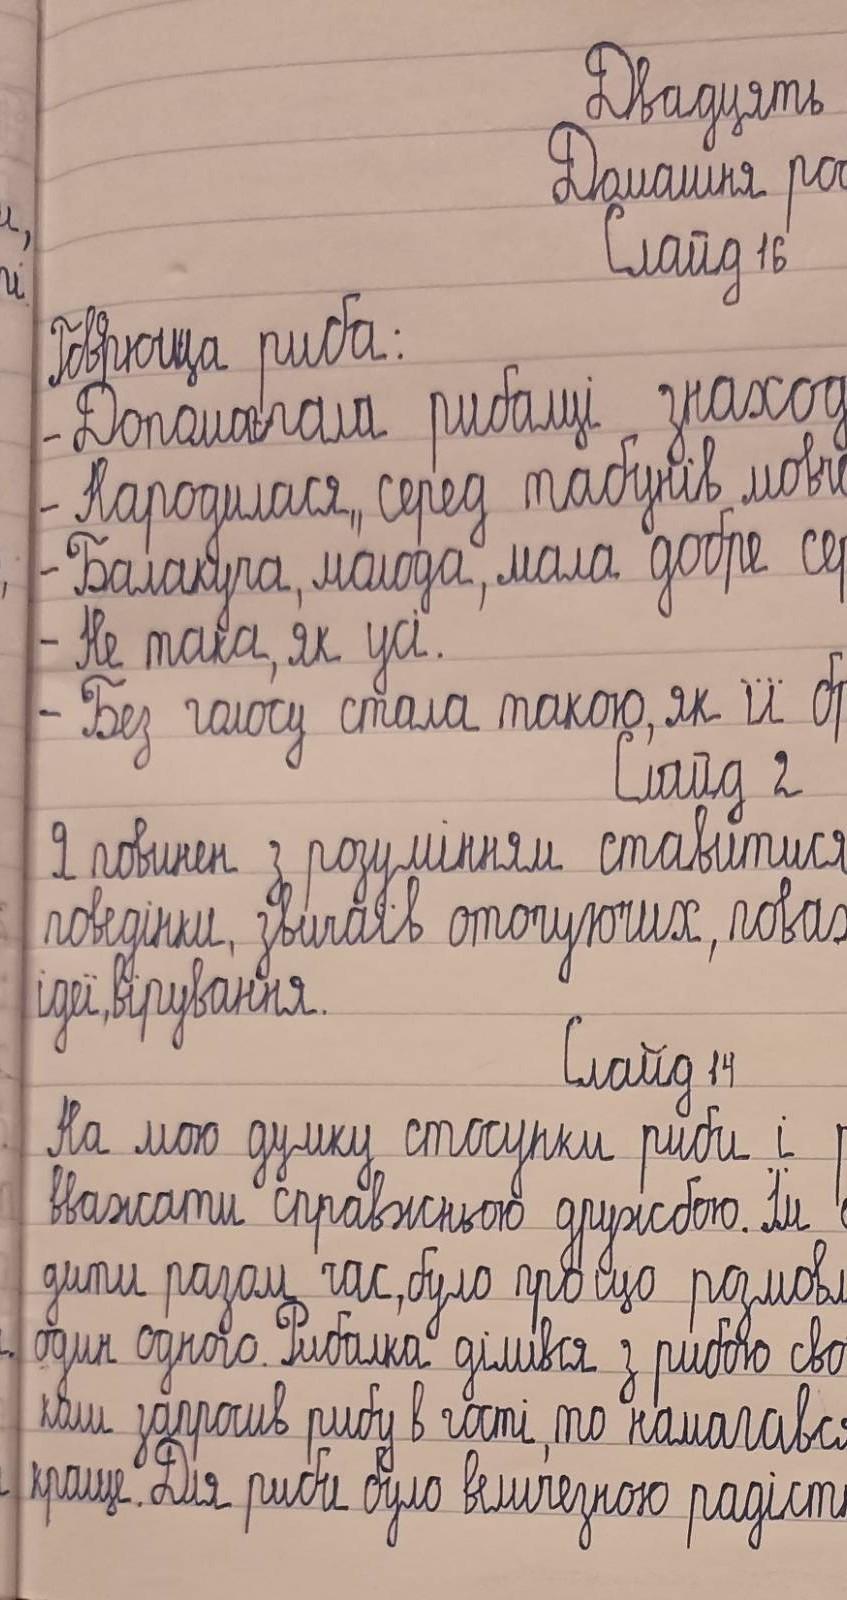 Двадцять
Домашня роб
Слайд 16
Говрюща риба:
- Допомагала рибалці знаход
- Народилася „ серед табунів мовч
- Балакуча, молода, мала добре сер
- Не така, як усі.
- Без голосу стала такою, як її бр
Слайд 2
Я повинен з розумінням ставитися
поведінки, звичаїв оточуючих, поваж
ідеї, вірування.
Слайд 14
На мою думку стосунки риби і р
вважати справжньою дружбою. Їм
дити разом час, було про що розмовл
один одного. Рибалка ділився з рибою сво
коли запросив рибу в гості, то намагався
краще. Для риби було величезною радіст